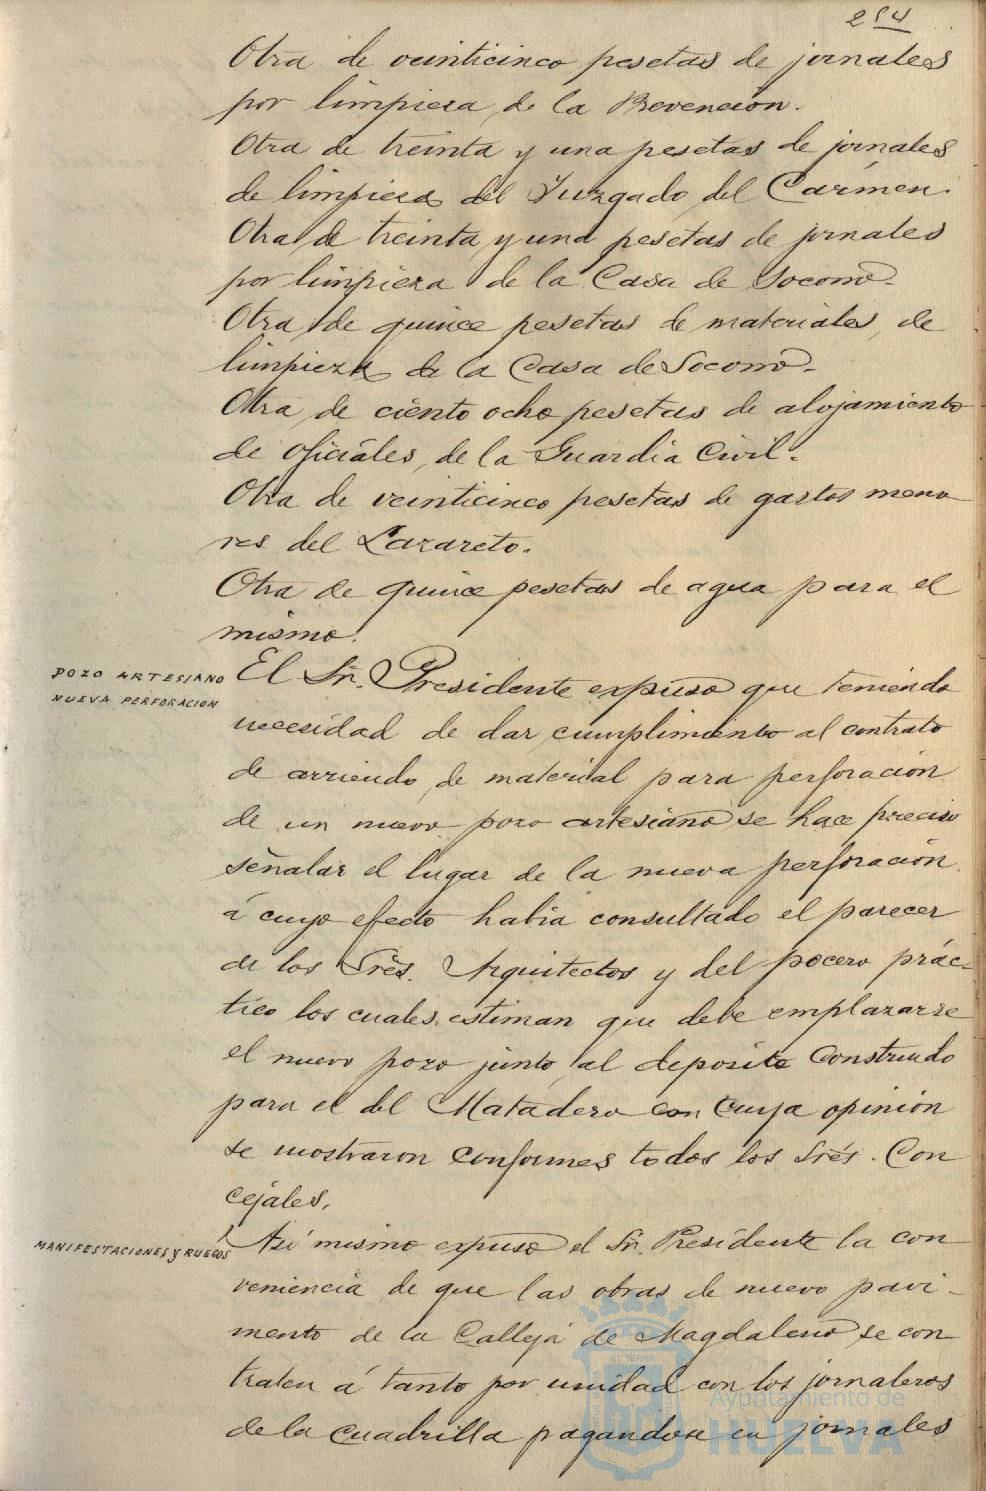 254
Otra de veinticinco pesetas de jornales
por limpieza de la Prevención.
Otra de treinta y una pesetas de jornales
de limpieza del Juzgado del Carmen.
Otra de treinta y una pesetas de jornales
por limpieza de la Casa de Socorro.
Otra de quince pesetas de materiales de
limpieza de la Casa de Socorro.
Otra de ciento ocho pesetas de alojamiento
de oficiales, de la Guardia Civil.
Otra de veinticinco pesetas de gastos meno
res del Lazareto.
Otra de quince pesetas de agua para el
mismo.
POZO ARTESIANO
NUEVA PERFORACION
El Sr. Presidente expuso que teniendo
necesidad de dar cumplimiento al contrato
de arriendo de material para perforación
de un nuevo pozo artesiano se hace preciso
señalar el lugar de la nueva perforación
á cuyo efecto habia consultado el parecer
de los Srés. Arquitectos y del pocero prác-
tico los cuales estiman que debe emplazarse
el nuevo pozo junto al deposito construido
para el del Matadero con cuya opinión
se mostraron conformes todos los Srés. Con
cejales.
MANIFESTACIONES y RUEGOS
Así mismo expuso el Sr. Presidente la con
veniencia de que las obras de nuevo pavi-
mento de la Calleja de Magdalena se con
traten á tanto por unidad con los jornaleros
de la cuadrilla pagandose en jornales
Ayuntamiento de
HUELVA